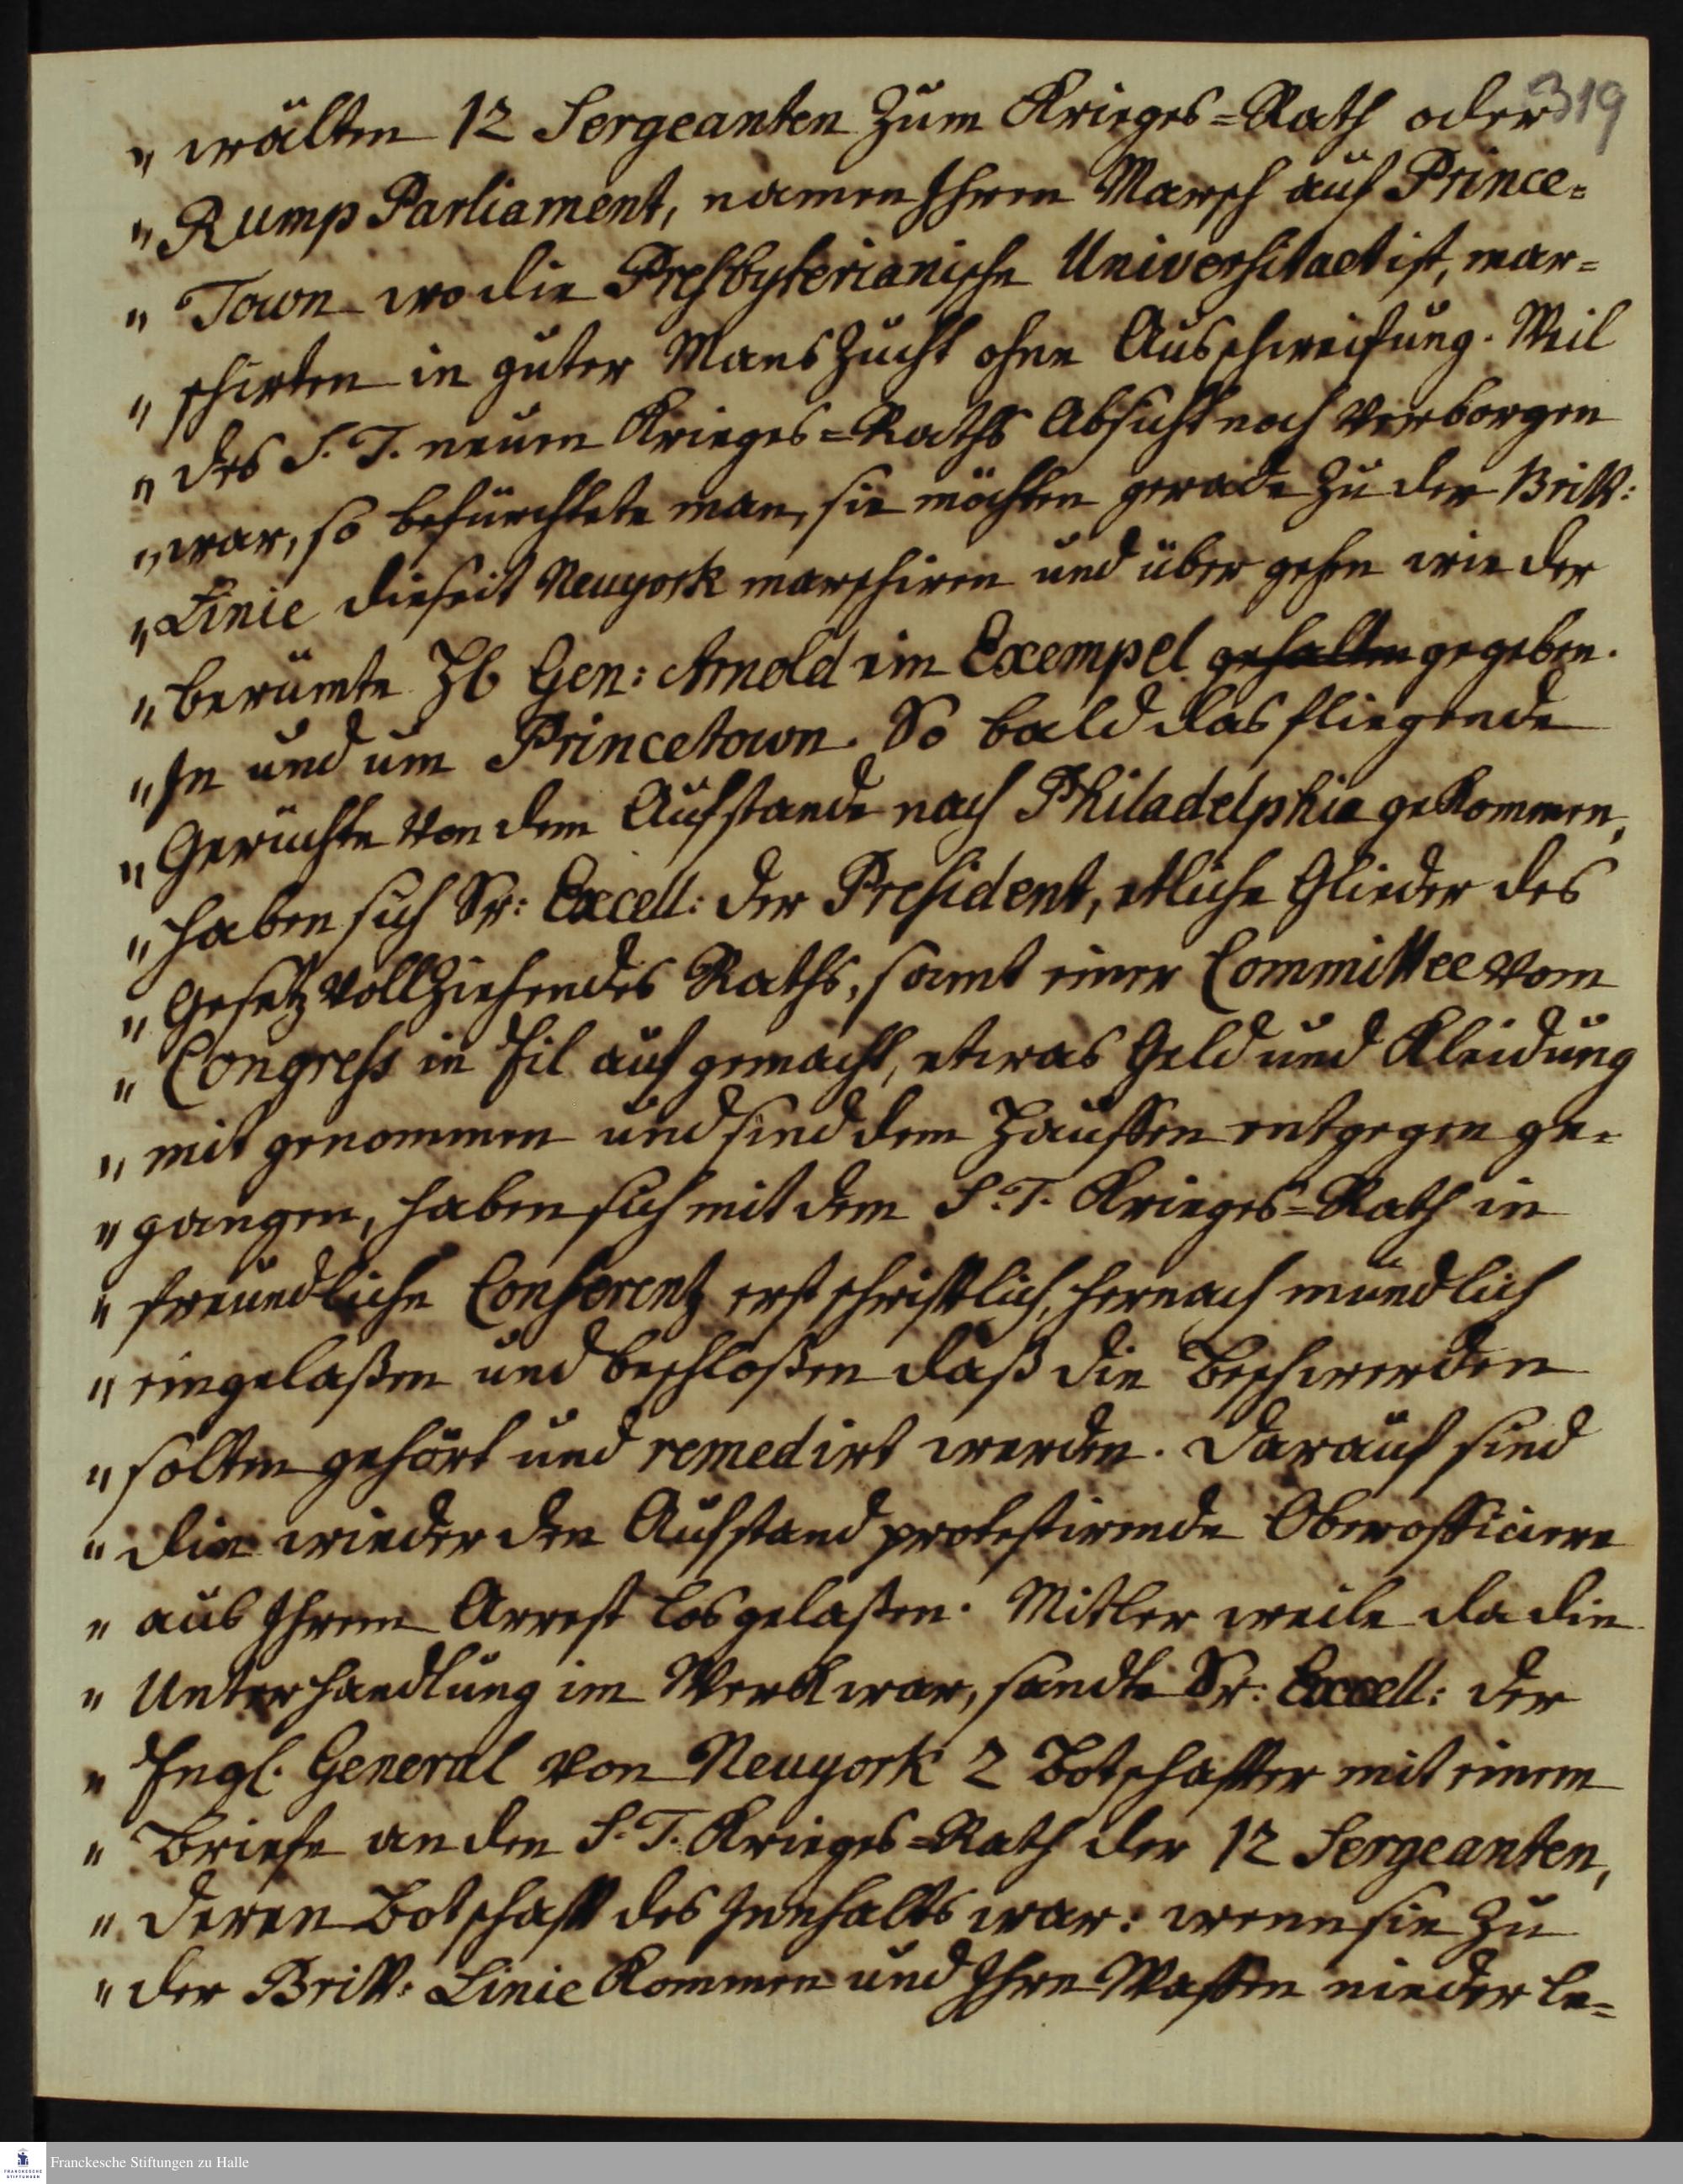 319
„ wälten 12 Sergeanten zum Krieges=Rath oder
„ Rump Parliament, namen Ihren Marsch auf Prince=
„ Town wo die Presbyterianische Universitaet ist, mar=
„ schirten in guter Manszucht ohne Ausschweifung. Weil
„ des S. T. neuen Krieges=Raths Absicht noch verborgen
„ war, so befürchtete man, sie möchten gerade zu der Britt:
„ Linie dieseit Neuyork marschiren und über gehen wie der
„ berümte Gen: Arnold im Exempel gehalten gegeben.
„ In und um Princetown. So bald das fliegende
„ Gerüchte von dem Aufstande nach Philadelphia gekommen,
„ haben sich Sr: Excell: der President, etliche Glieder des
„ Gesetz vollziehendes Raths, samt einer Committee vom
„ Congress in Eil aufgemacht, etwas Geld und Kleidung
„ mit genommen und sind dem Hauffen entgegen ge=
„ gangen, haben sich mit dem S. T. Krieges=Rath in
„ freundliche Conferentz erst schriftlich, hernach mündlich
„ eingelaßen und beschloßen daß die Beschwerden
„ solten gehört und remedirt werden. Darauf sind
„ die wieder den Aufstand protestirende Oberofficiere
„ aus Ihrem Arrest losgelaßen. Mitler weile da die
„ Unterhandlung im Werck war, sandte Sr: Excell: der
„ Engl. General von Neuyork 2 Botschafter mit einem
„ Briefe an den S. T. Krieges=Rath der 12 Sergeanten,
„ deren Botschaft des Innhalts war: wenn sie zu
„ der Britt: Linie kommen und Ihre Waffen nieder le=
Franckesche Stiftungen zu Halle